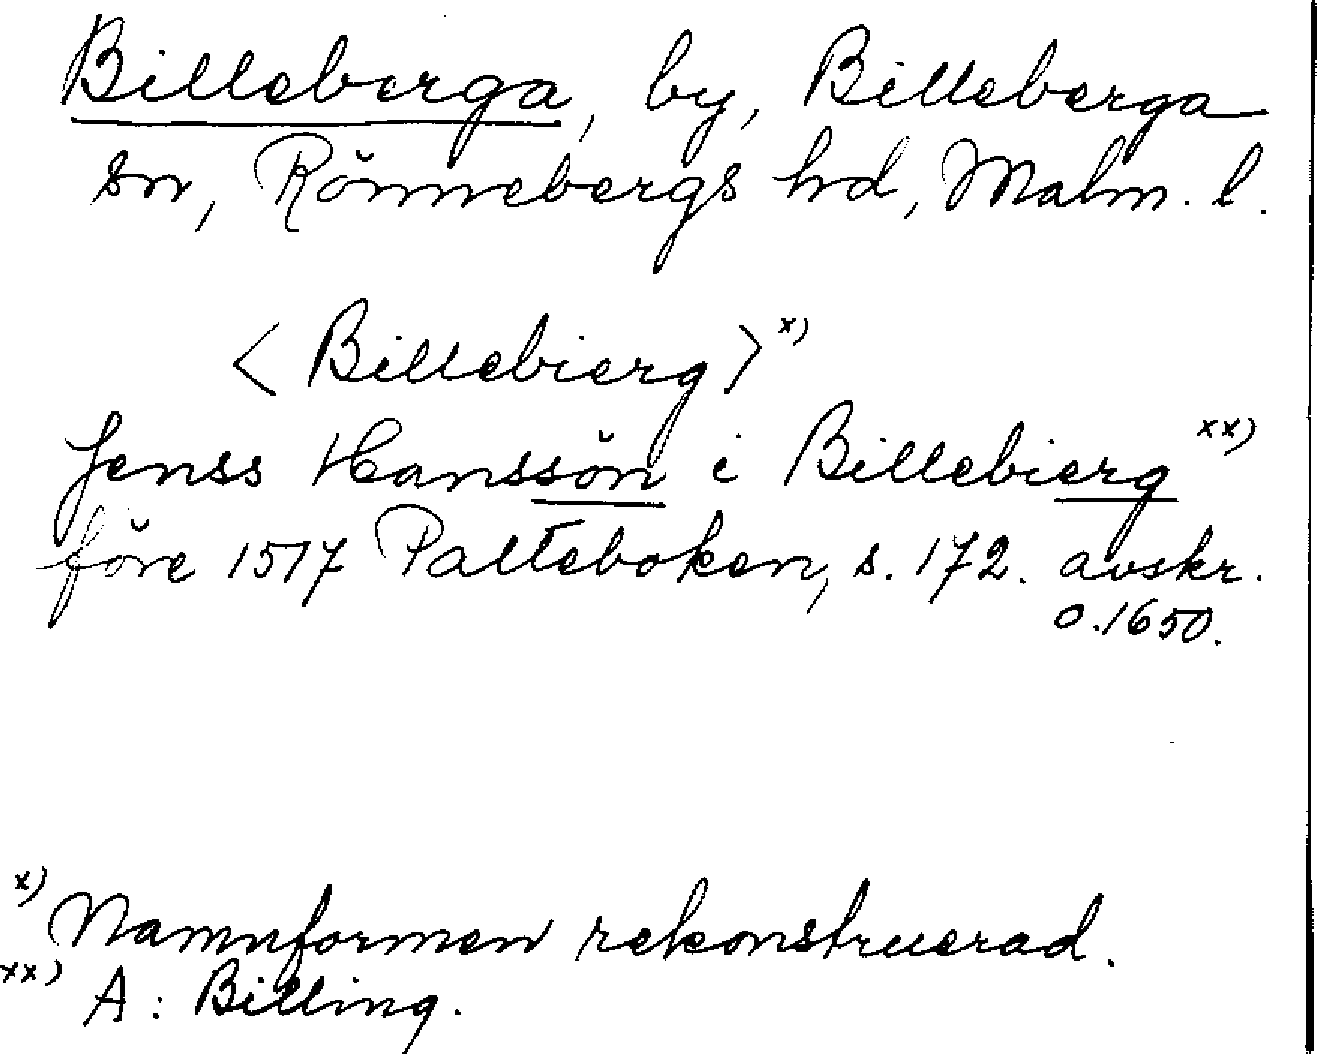 Billeberga, by, Billeberga
sn, Rönnebergs hd, Malm. l.
< Billebierg > x)
Jenss Hanssön i Billebierg xx)
före 1517 Palteboken, s. 172. avskr.
o. 1650.
x) Namnformen rekonstruerad.
xx) A: Billing.